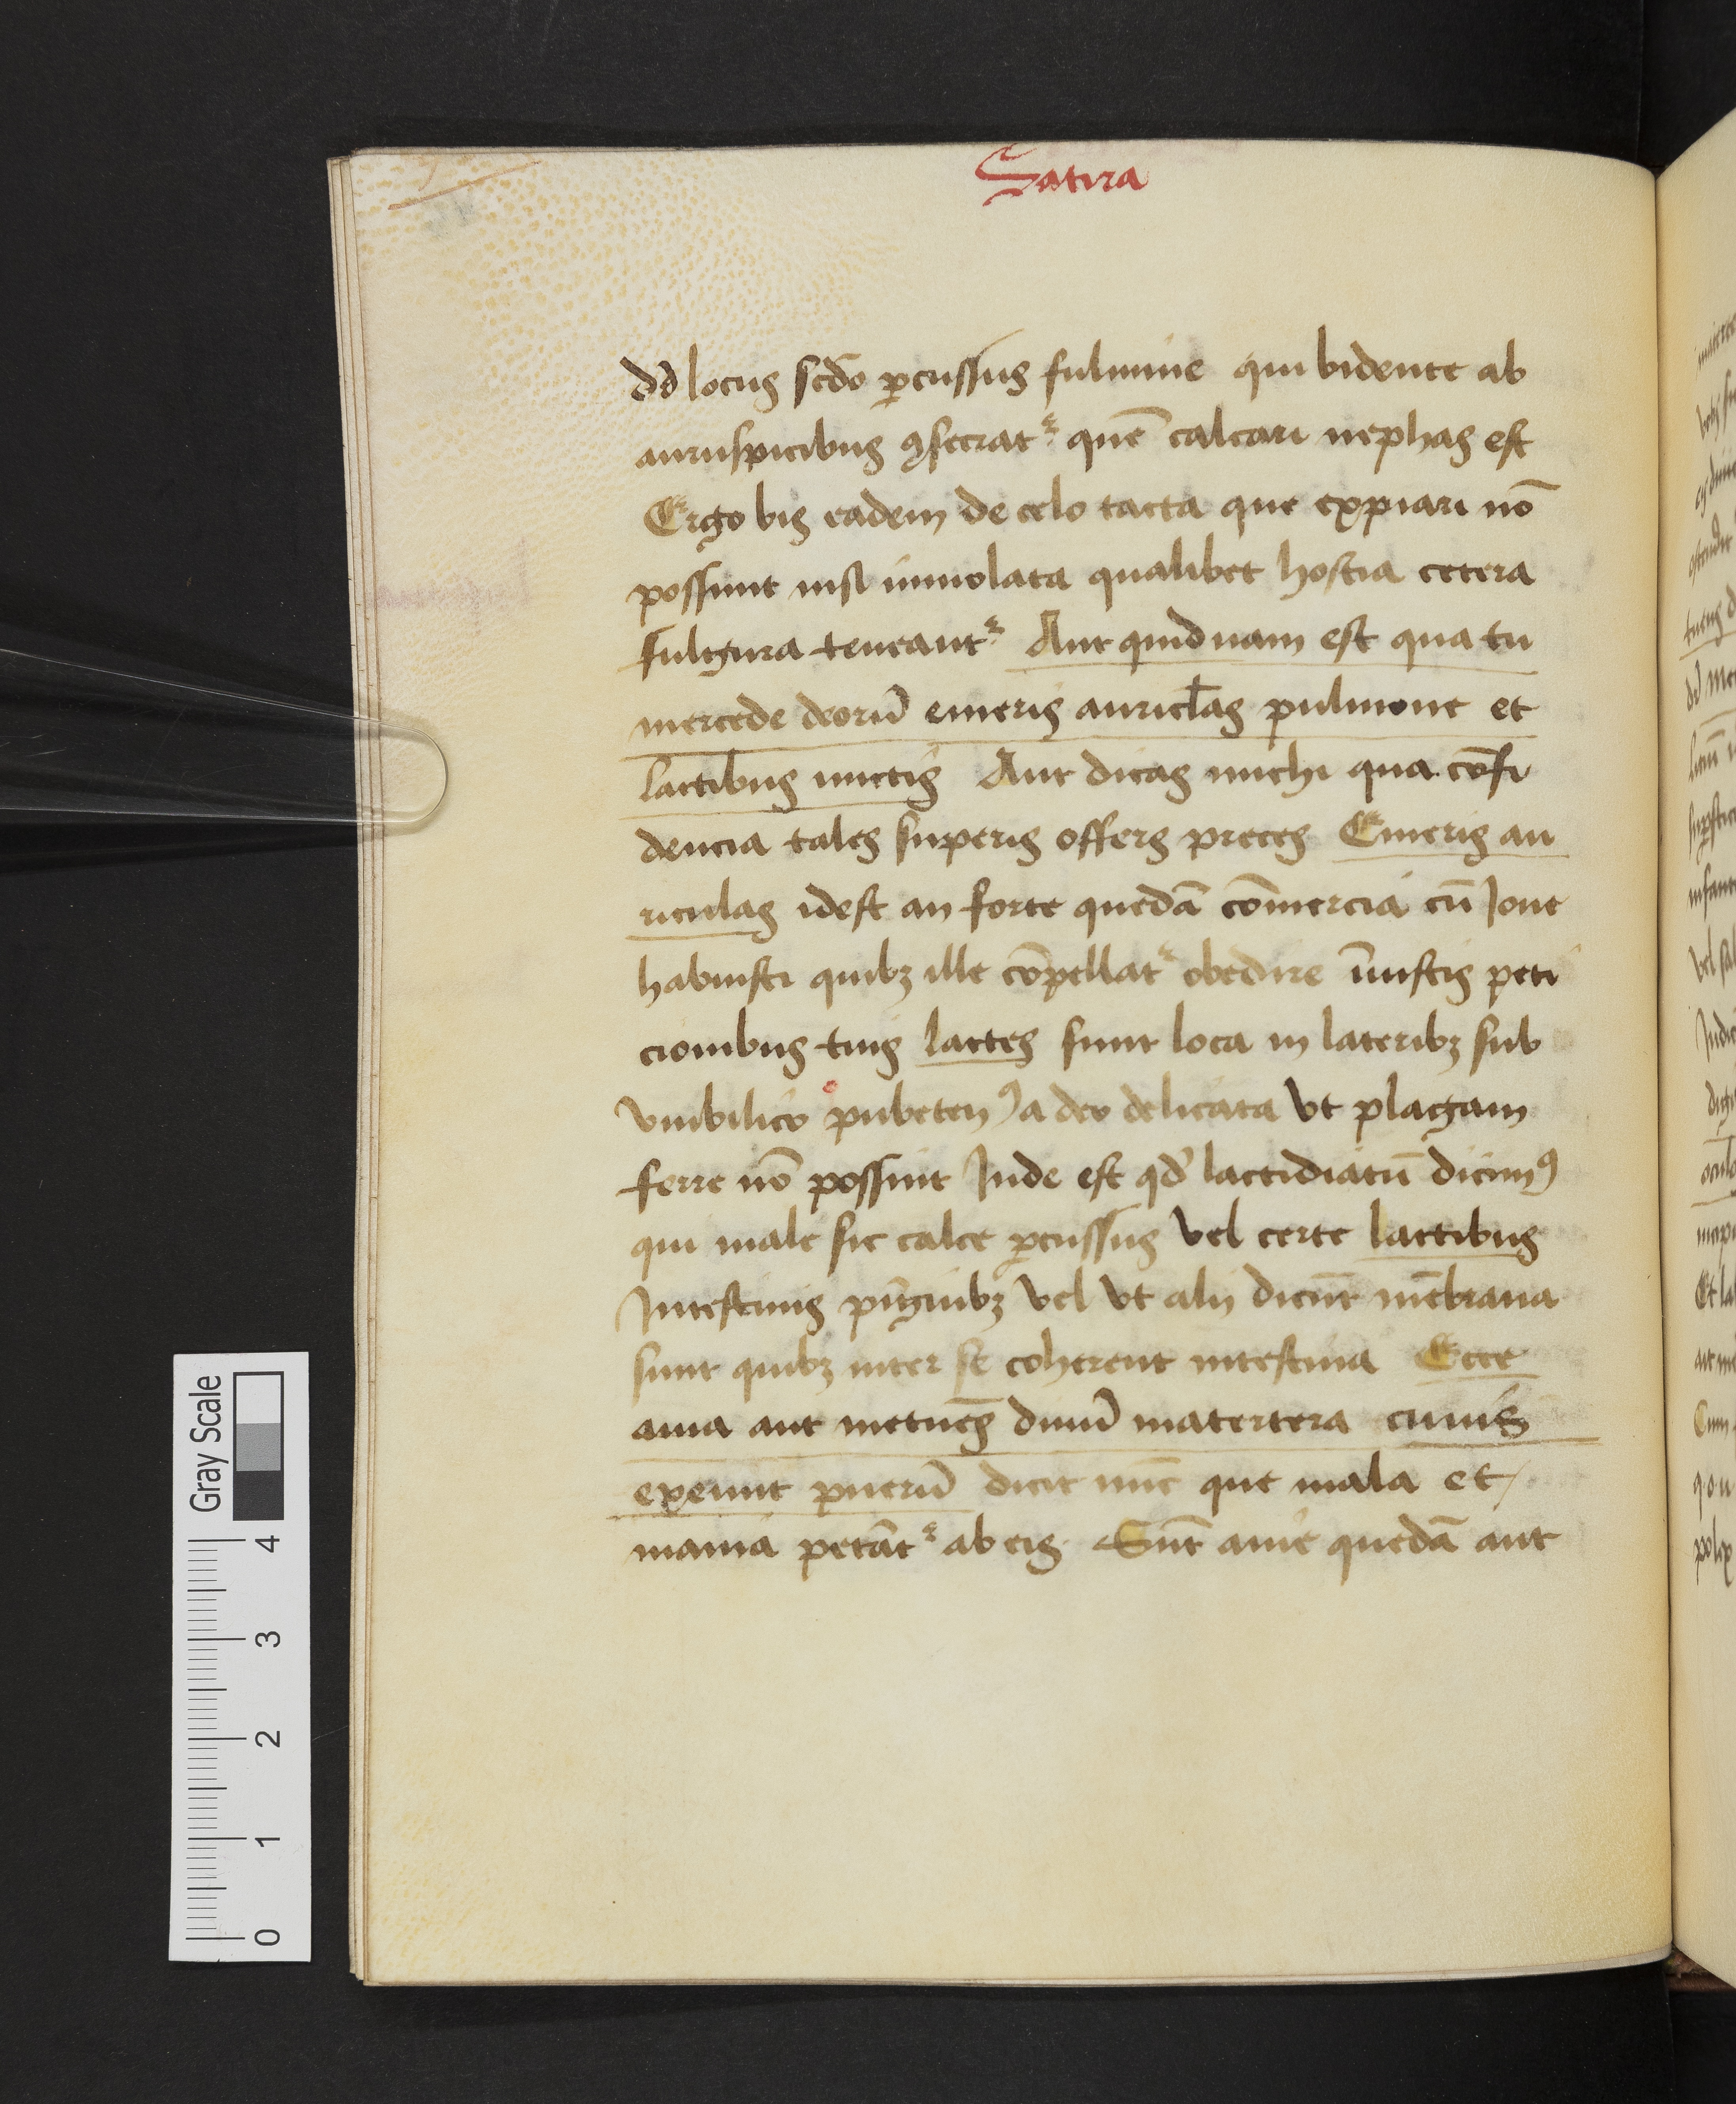 Satira
dd locus scdo ꝑcussus fulmine qui bidente ab
auruspicibus ꝯsecratᷣ quē calcari nephas est
Ergo bis eadem de celo tacta que expiari nō
possunt nisi immolata qualibet hostia cetera
fulgura teneantᷣ Aut quidnam est qua tu
mercede deorū emeris auriclas pulmone et
lactibus unctis Aut dicas michi qua cōfi
dencia tales superis offers preces Emeris au
riculas idest an forte quedā cōmercia cū Joue
habuisti quibꝫ ille cōpellatᷣ obedire īiustis peti
cionibus tuis lactes sunt loca in lateribꝫ sub
vmbilico pubetenꝰ a deo delicata vt plagam
ferre nō possint Inde est qd lactidiatū dicimꝰ
qui male sic calce ꝑcussus vel certe lactibus
Intestinis pīguibꝫ vel vt alij dicūt mēbrana
sunt quibꝫ inter se coherent intestina Ecce
auia aut metuēs diuū matertera cunis
exemit puerū dicit nūc que mala et
mania petātᷣ ab eis Sūt auie quedā aut
Gray Scale
4
3
2
1
0